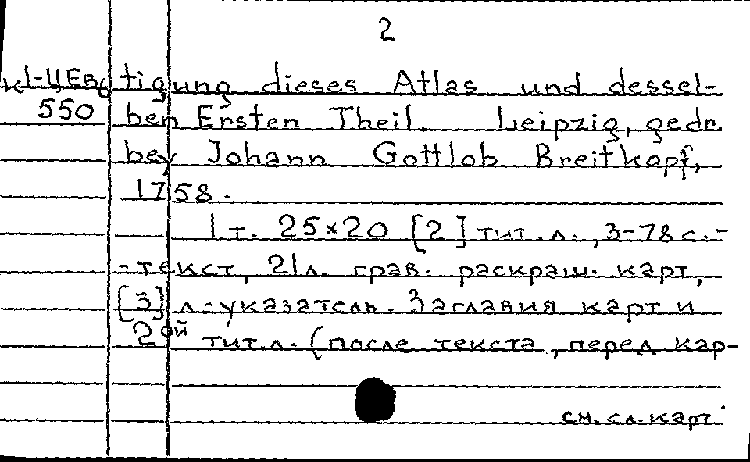 2
К1-ЦЕв6 tigung dieses Atlas und dessel-
550 ben Ersten Theil. Leipzig, gedr.
bey Johann Gottlob Breitkopf,
1758.
1 т. 25×20 [2] тит.л., 3-78 с.-
-текст, 21 л. грав. раскраш. карт,
[3] л.-указатель. Заглавия карт и
2ой тит.л. (после текста, перед кар-
см. сл. карт.